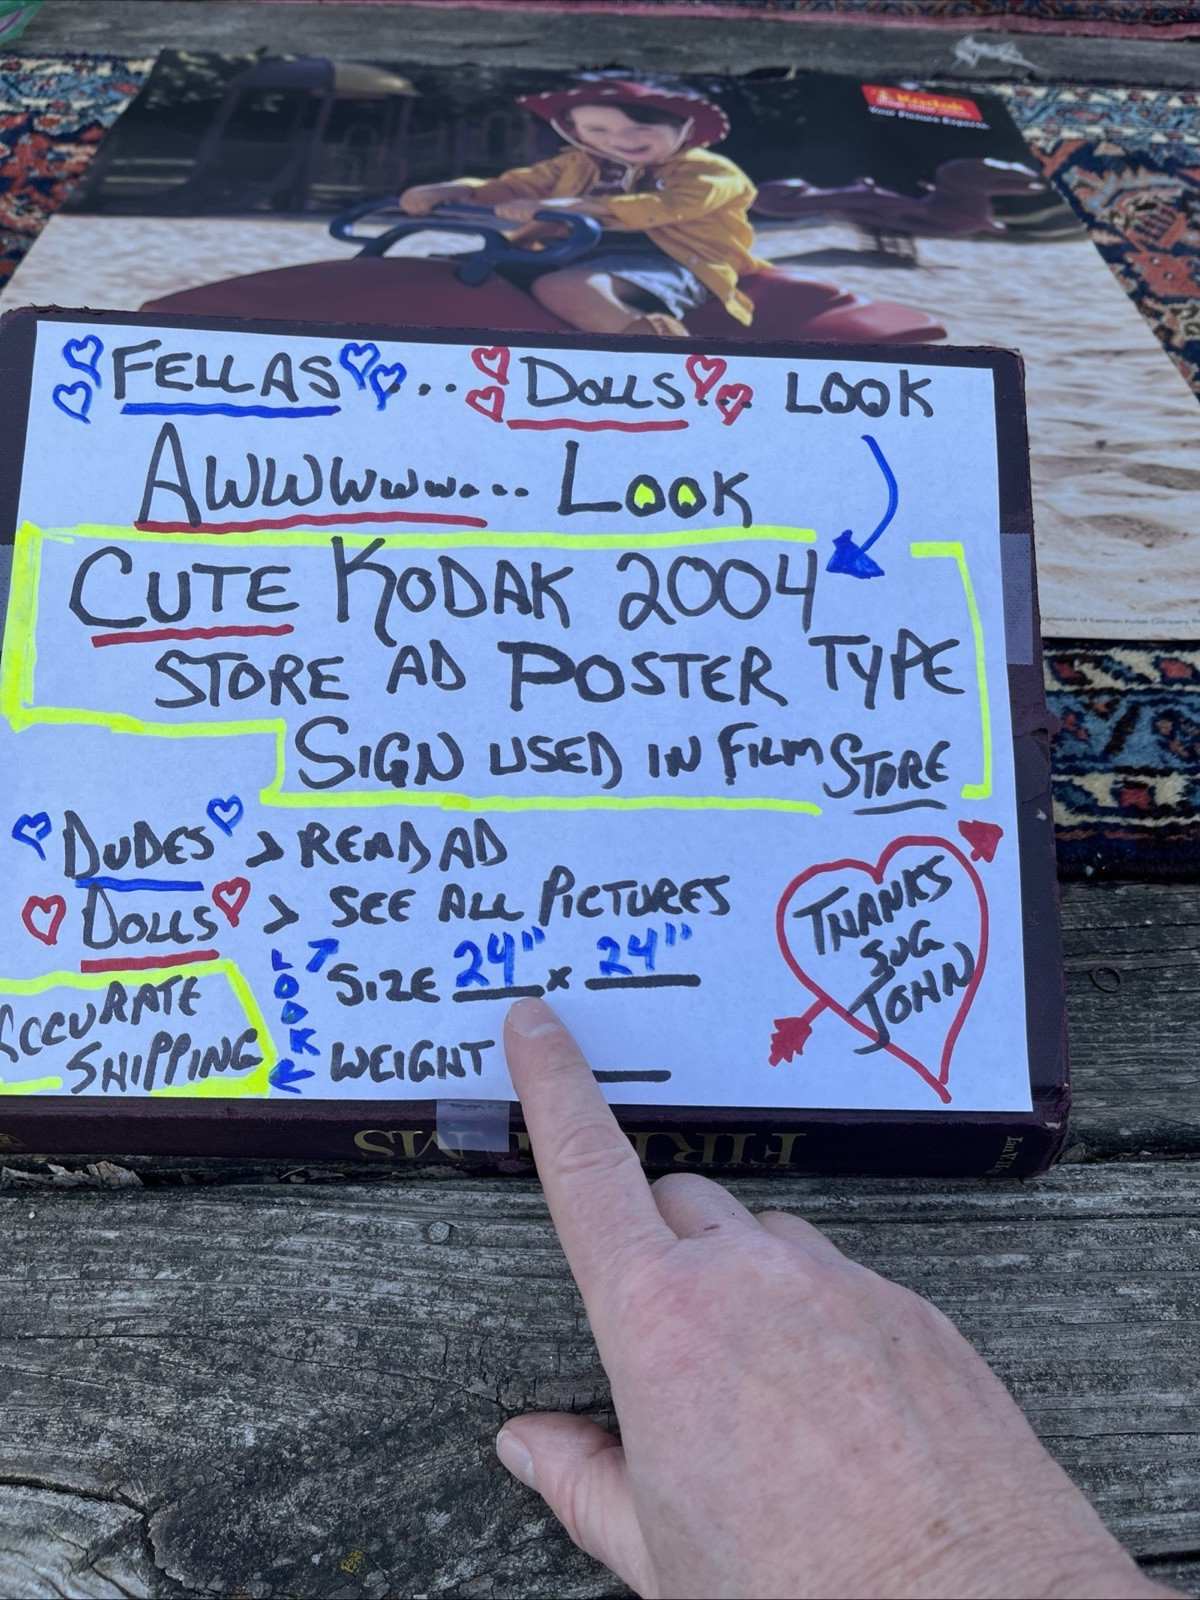 Kodak
Your Picture Experts.
FELLAS... DOLLS... LOOK
AWWWWWW... LOOK
CUTE KODAK 2004
STORE AD POSTER TYPE
SIGN USED IN FILM STORE
DUDES > READ AD
DOLLS > SEE ALL PICTURES
LOOK
SIZE 24" x 24"
WEIGHT
ACCURATE
SHIPPING
THANKS
SUG
JOHN